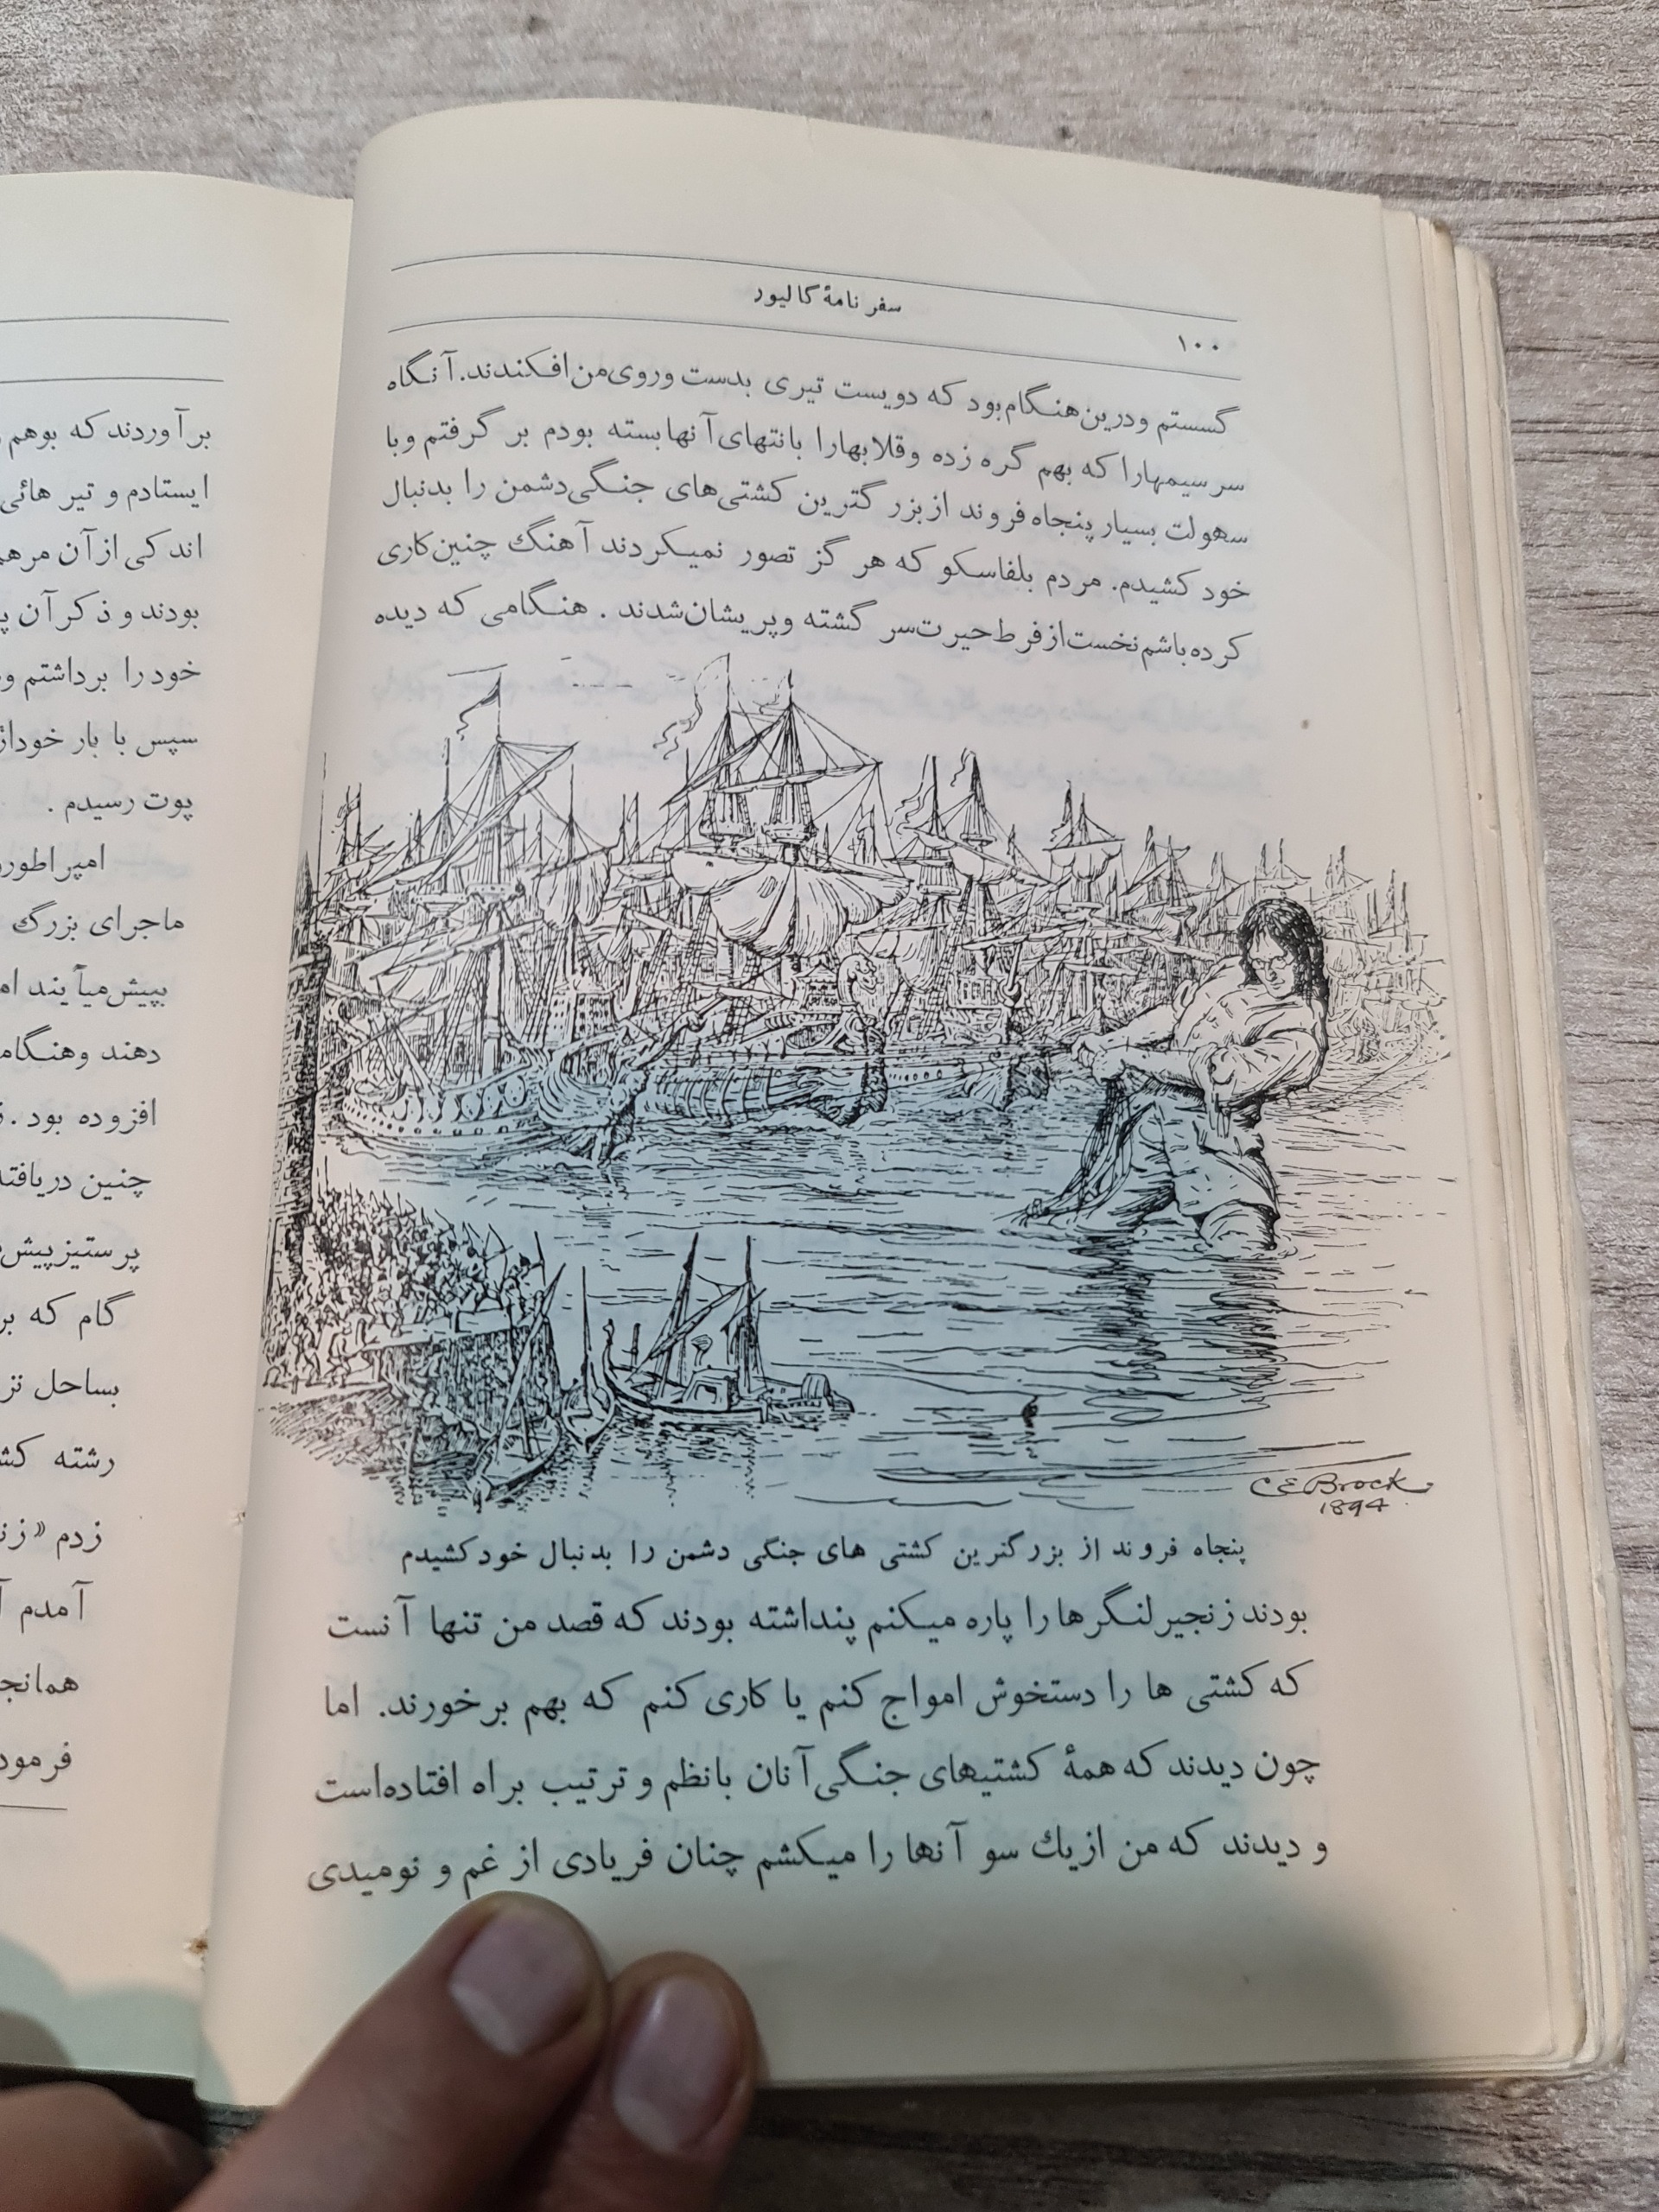 سفر نامهٔ گالیور
۱۰۰
گسستم ودرین هنگام بود که دویست تیری بدست وروی من افکندند. آنگاه
سر سیمها را که بهم گره زده وقلابها را بانتهای آنها بسته بودم بر گرفتم وبا
سهولت بسیار پنجاه فروند از بزر گترین کشتی‌های جنگی دشمن را بدنبال
خود کشیدم. مردم بلفاسکو که هر گز تصور نمیکردند آهنگ چنین کاری
کرده باشم نخست از فرط حیرت سر گشته وپریشان شدند . هنگامی که دیده
C E Brock
1894
پنجاه فروند از بزرگترین کشتی های جنگی دشمن را بدنبال خود کشیدم
بودند زنجیر لنگرها را پاره میکنم پنداشته بودند که قصد من تنها آنست
که کشتی ها را دستخوش امواج کنم یا کاری کنم که بهم بر خورند. اما
چون دیدند که همهٔ کشتیهای جنگی آنان بانظم و ترتیب براه افتاده است
و دیدند که من از یك سو آنها را میکشم چنان فریادی از غم و نومیدی
بر آوردند که بوهم
ایستادم و تیر هائی
اندکی از آن مرهم
بودند و ذکر آن
خود را برداشتم
سپس با بار خود
پوت رسیدم .
امپراطور
ماجرای بزرگ
بپیش میآیند
دهند وهنگام
افزوده بود .
چنین دریافته
پر ستیز پیش
گام که
بساحل
رشته
زدم »
آمدم
همانجا
فرمود